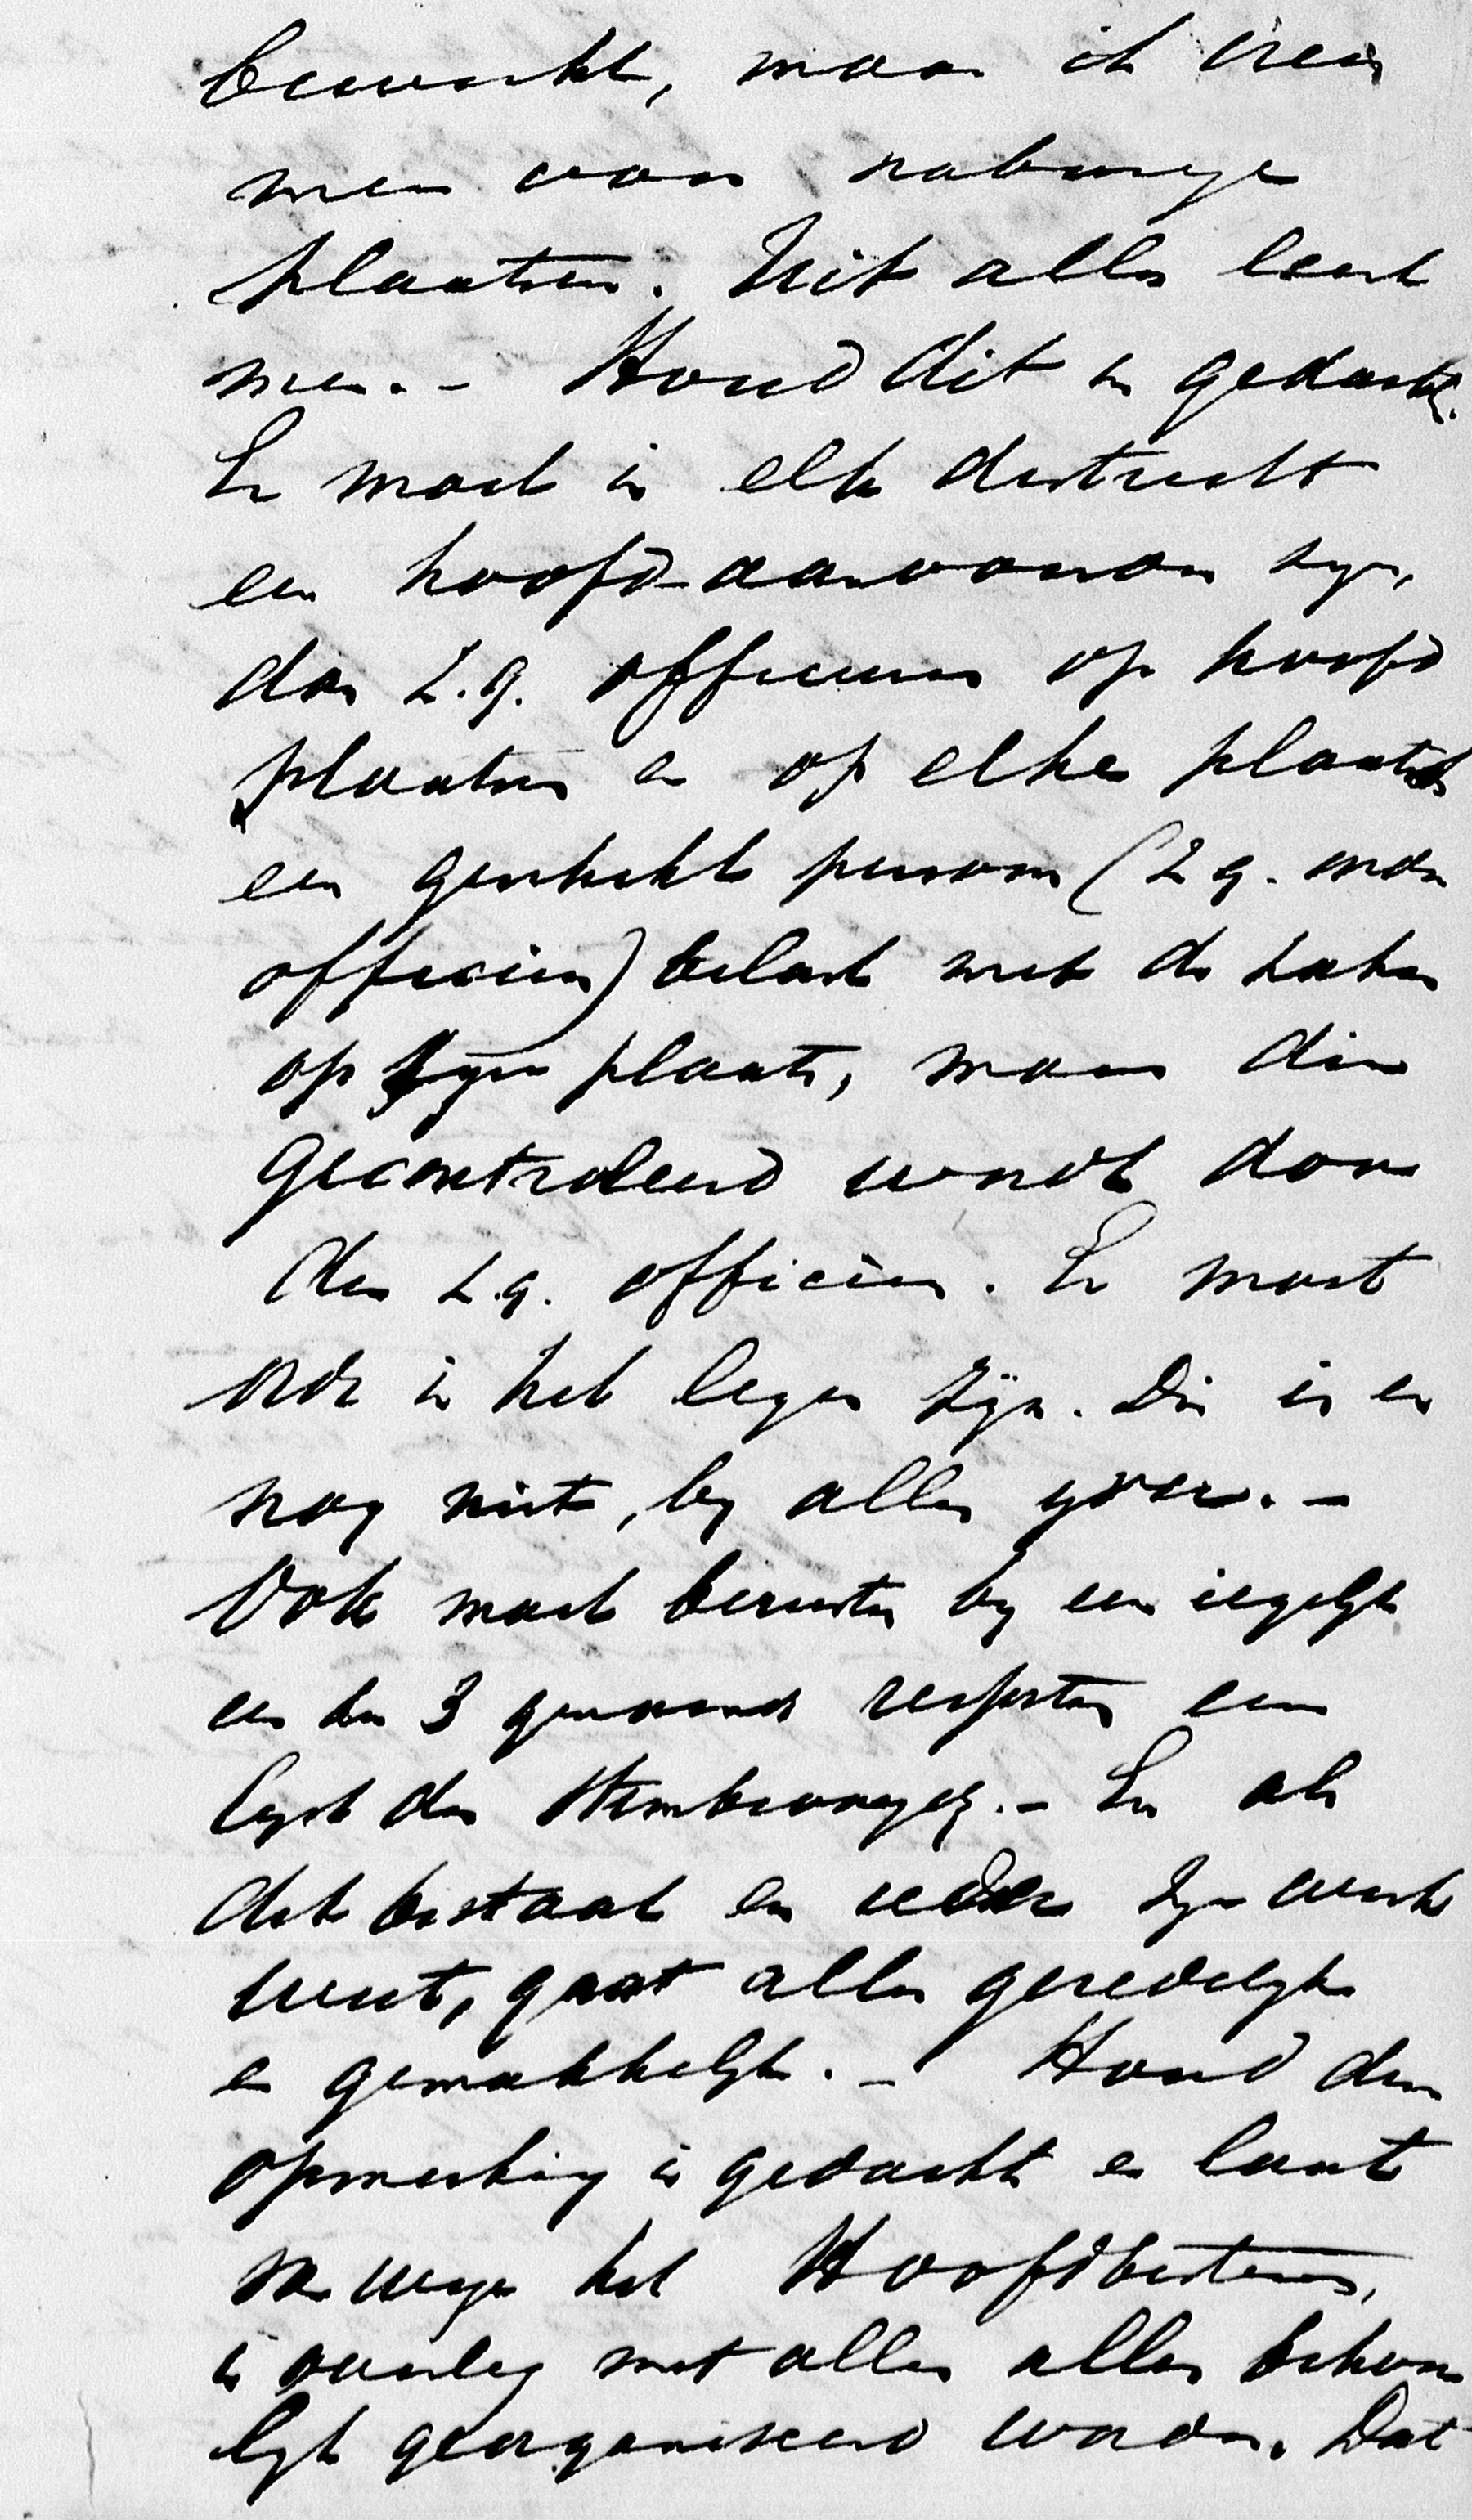 bewerkt, maar ik vrees
men voor naburige
plaatsen. Uit alles leert
men. - Houd dit in gedachte.
Er moet in elk district
een hoofdaanvoerder zyn,
dan z.g. officieren op hoofd
plaatsen en op elke plaats
een geschikt persoon (z g. onder
officier) belast met de zaken
op zyn plaats, maar die
gecontroleerd wordt door
den z.g. officier. Er moet
orde in het leger zijn. Die is er
nog niet, by alle yver. -
Ook moet berusten by een iegelyk
der 3 genoemde
lyst der Stembevoegden. - En als
dit bestaat en ieder zyn werk
weet, gaat alles geredelyk
en gemakkelyk. - Houd deze
opmerking in gedachte en laat
van wege het Hoofdbestuur,
in overleg met allen alles behoor
lyk georganiseerd worden. Dat